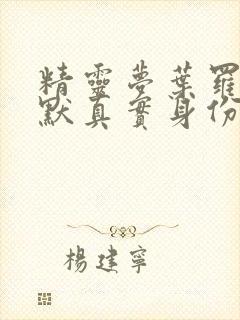 精靈夢葉羅
默真實身份
楊建寧